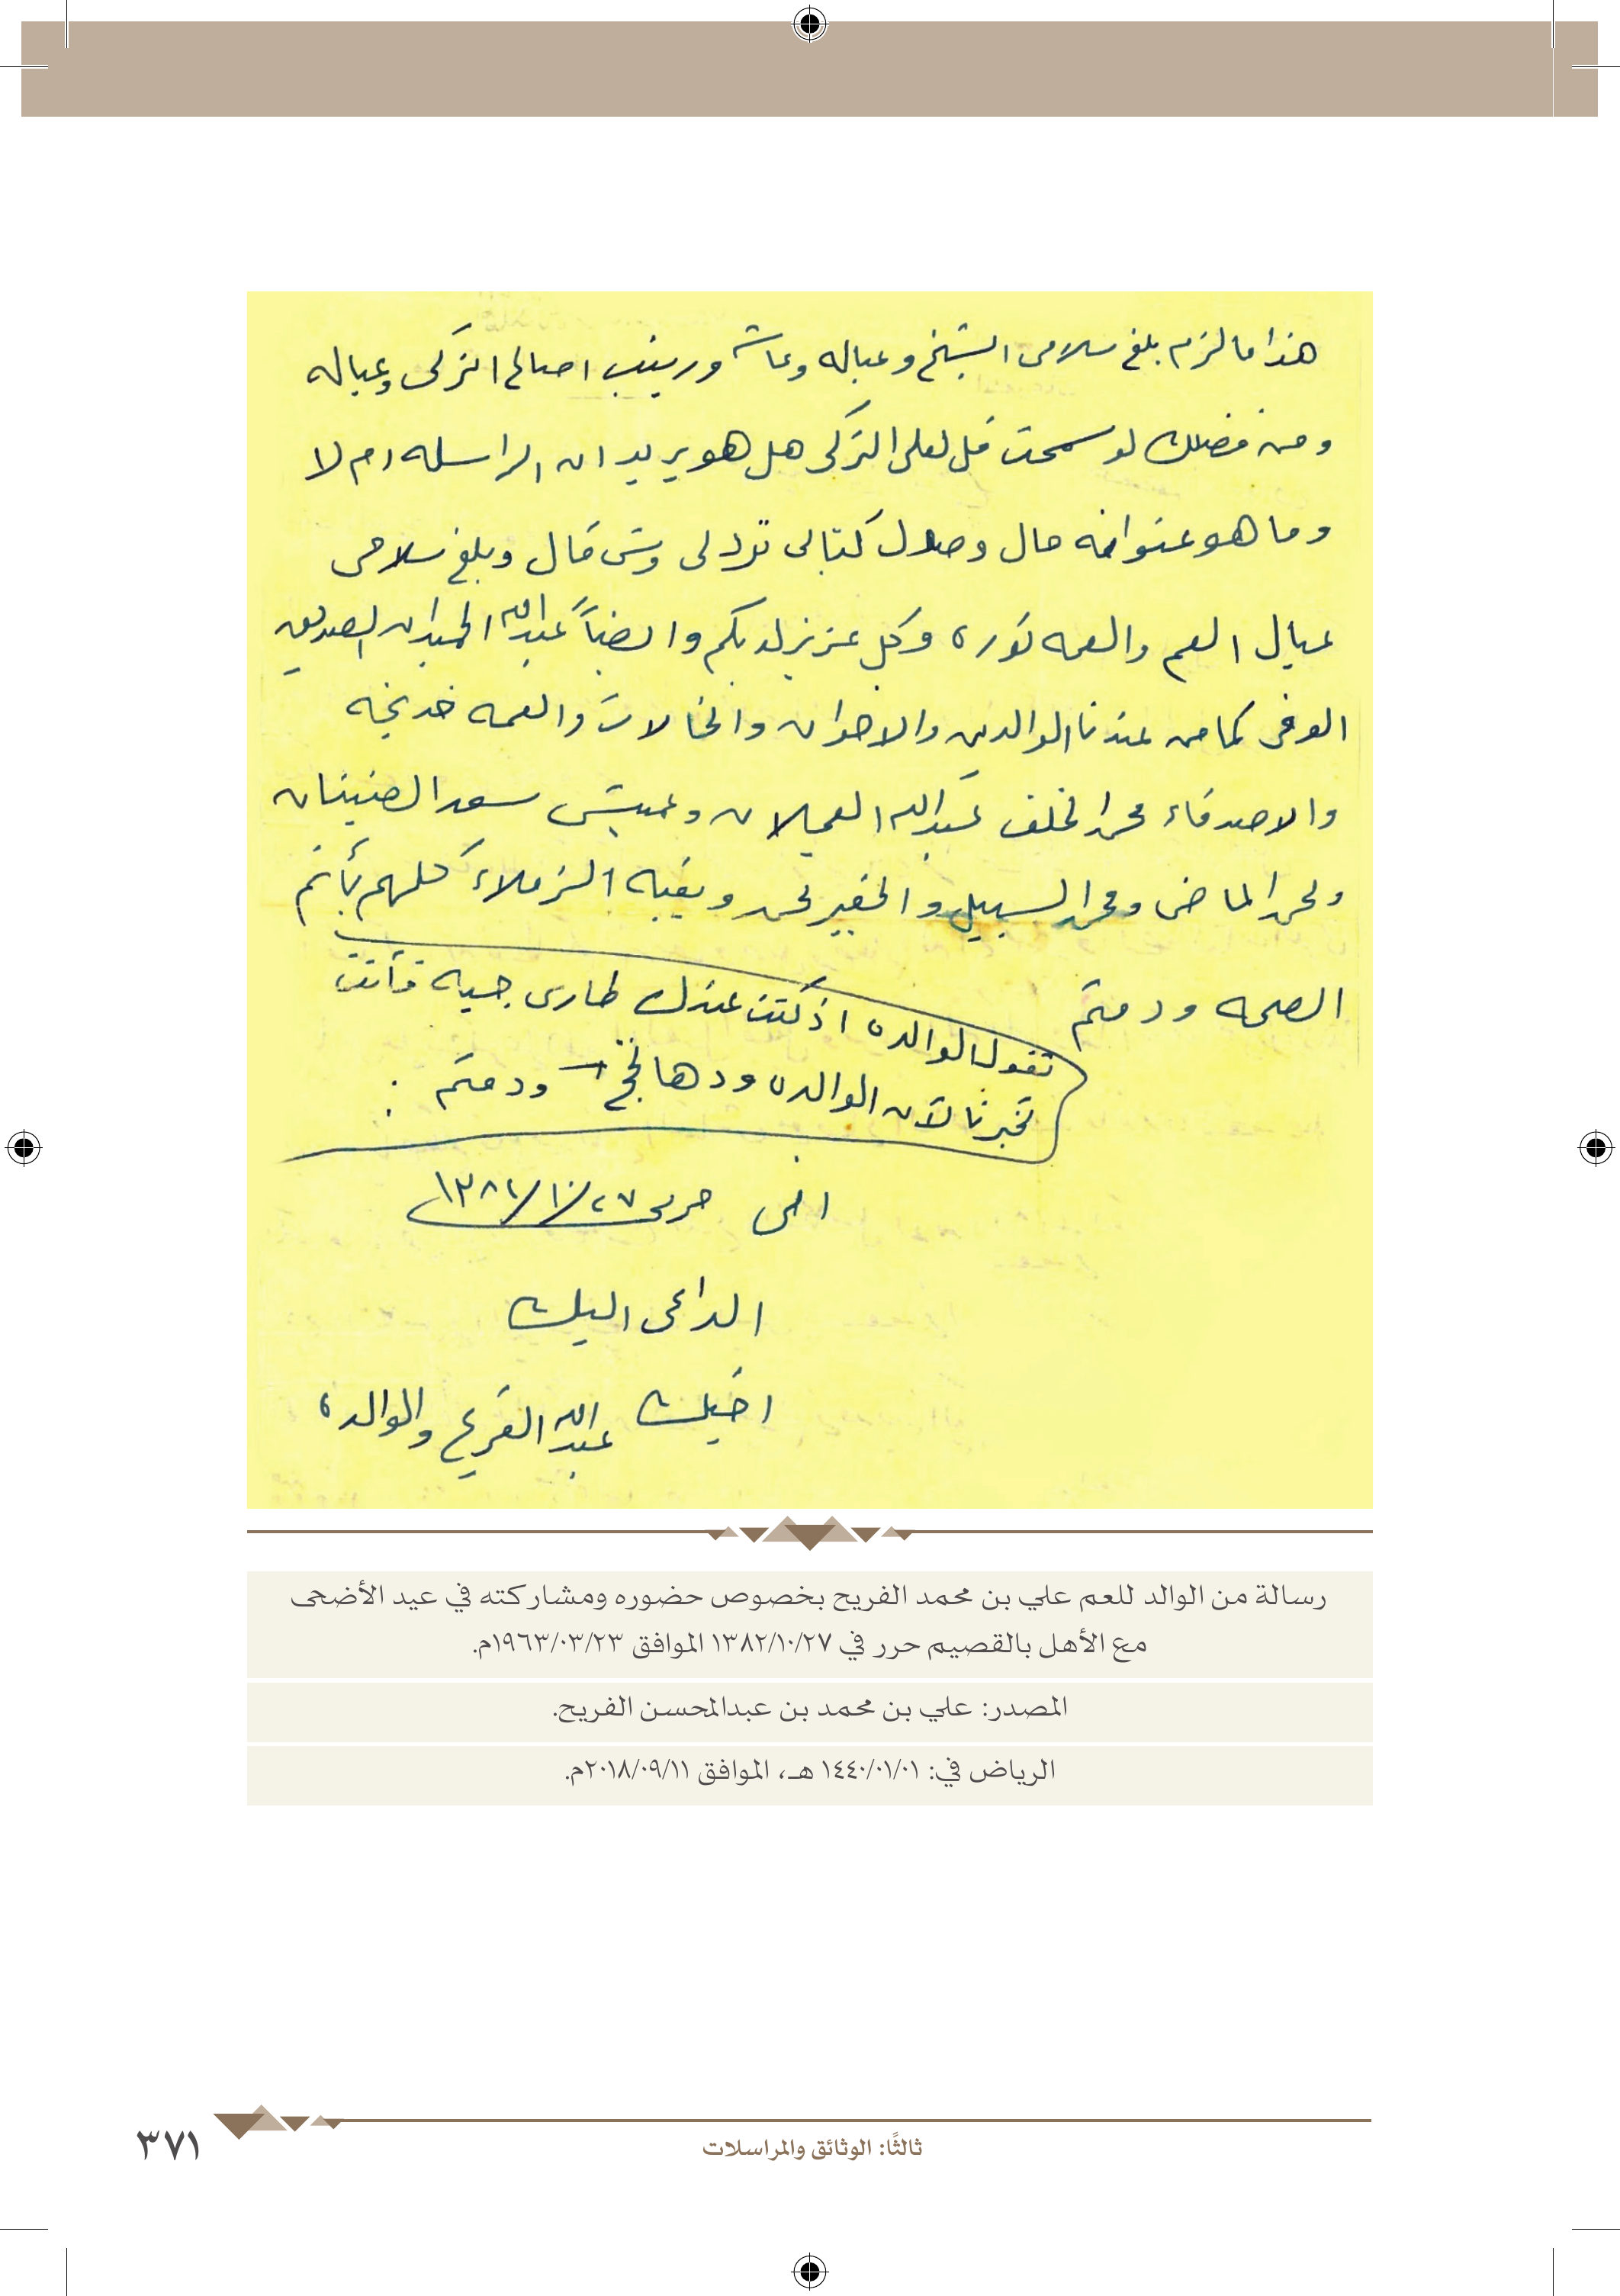 هذا ما لزم بلغ سلامي الشيخ وعياله وعاشه وزينب اصالح التركي وعياله
ومن فضلك لو سمحت قل لعلي التركي هل هو يريد ان اراسله ام لا
وما هو عنوانه حال وصول كتابي ترد لي وش قال وبلغ سلامي
عيال العم والعمه نوره وكل عزيز لديكم وايضاً عبدالله الحميدان الصديق
الوفي كما من عندنا الوالدين والاخوان والخالات والعمه خديجه
والاصدقاء محمد الخلف عبدالله العجلان سعد الضنينان
ومحمد الماضي ومحمد السبيل ومحمد وبقية الزملاء كلهم بأتم
الصحه ودمتم
تقول الوالده اذ كنت عندك طاري جيه فأنت
تخبرنا لأن الوالده ودها تحج ودمتم :
اخي حرر في ١٣٨٢/١٠/٢٧
الداعي اليك
اخيك عبدالله الفريح والوالده
رسالة من الوالد للعم علي بن محمد الفريح بخصوص حضوره ومشاركته في عيد الأضحى
مع الأهل بالقصيم حرر في ١٣٨٢/١٠/٢٧ الموافق ١٩٦٣/٠٣/٢٣م.
المصدر: علي بن محمد بن عبدالمحسن الفريح.
الرياض في: ١٤٤٠/٠١/٠١ هـ، الموافق ٢٠١٨/٠٩/١١م.
ثالثًا: الوثائق والمراسلات
٣٧١